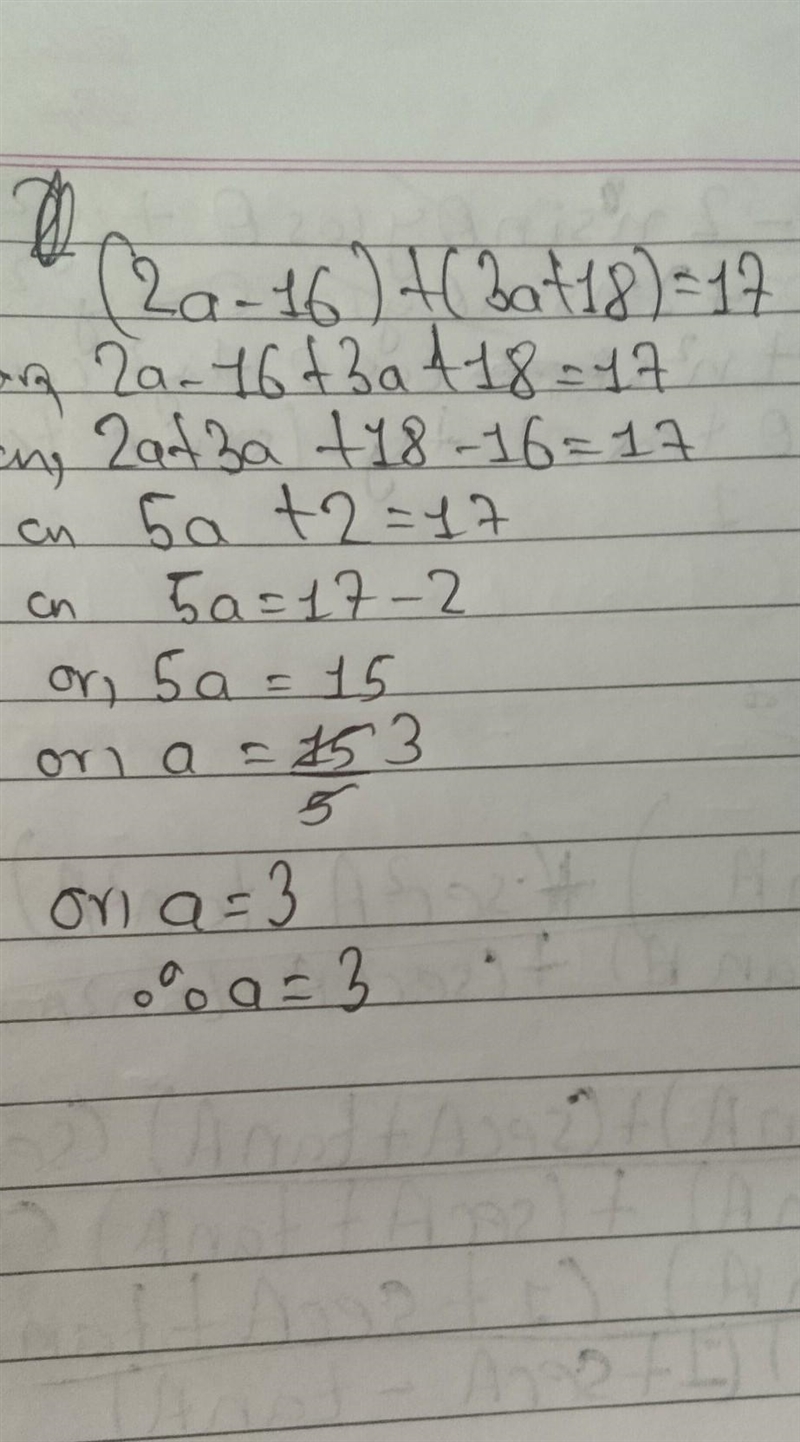 (2a-16)+(3a+18)=17
or, 2a-16+3a+18=17
or, 2a+3a +18-16=17
or 5a +2=17
or 5a=17-2
or, 5a = 15
or, a = 15/5 3
or, a=3
∴ a=3